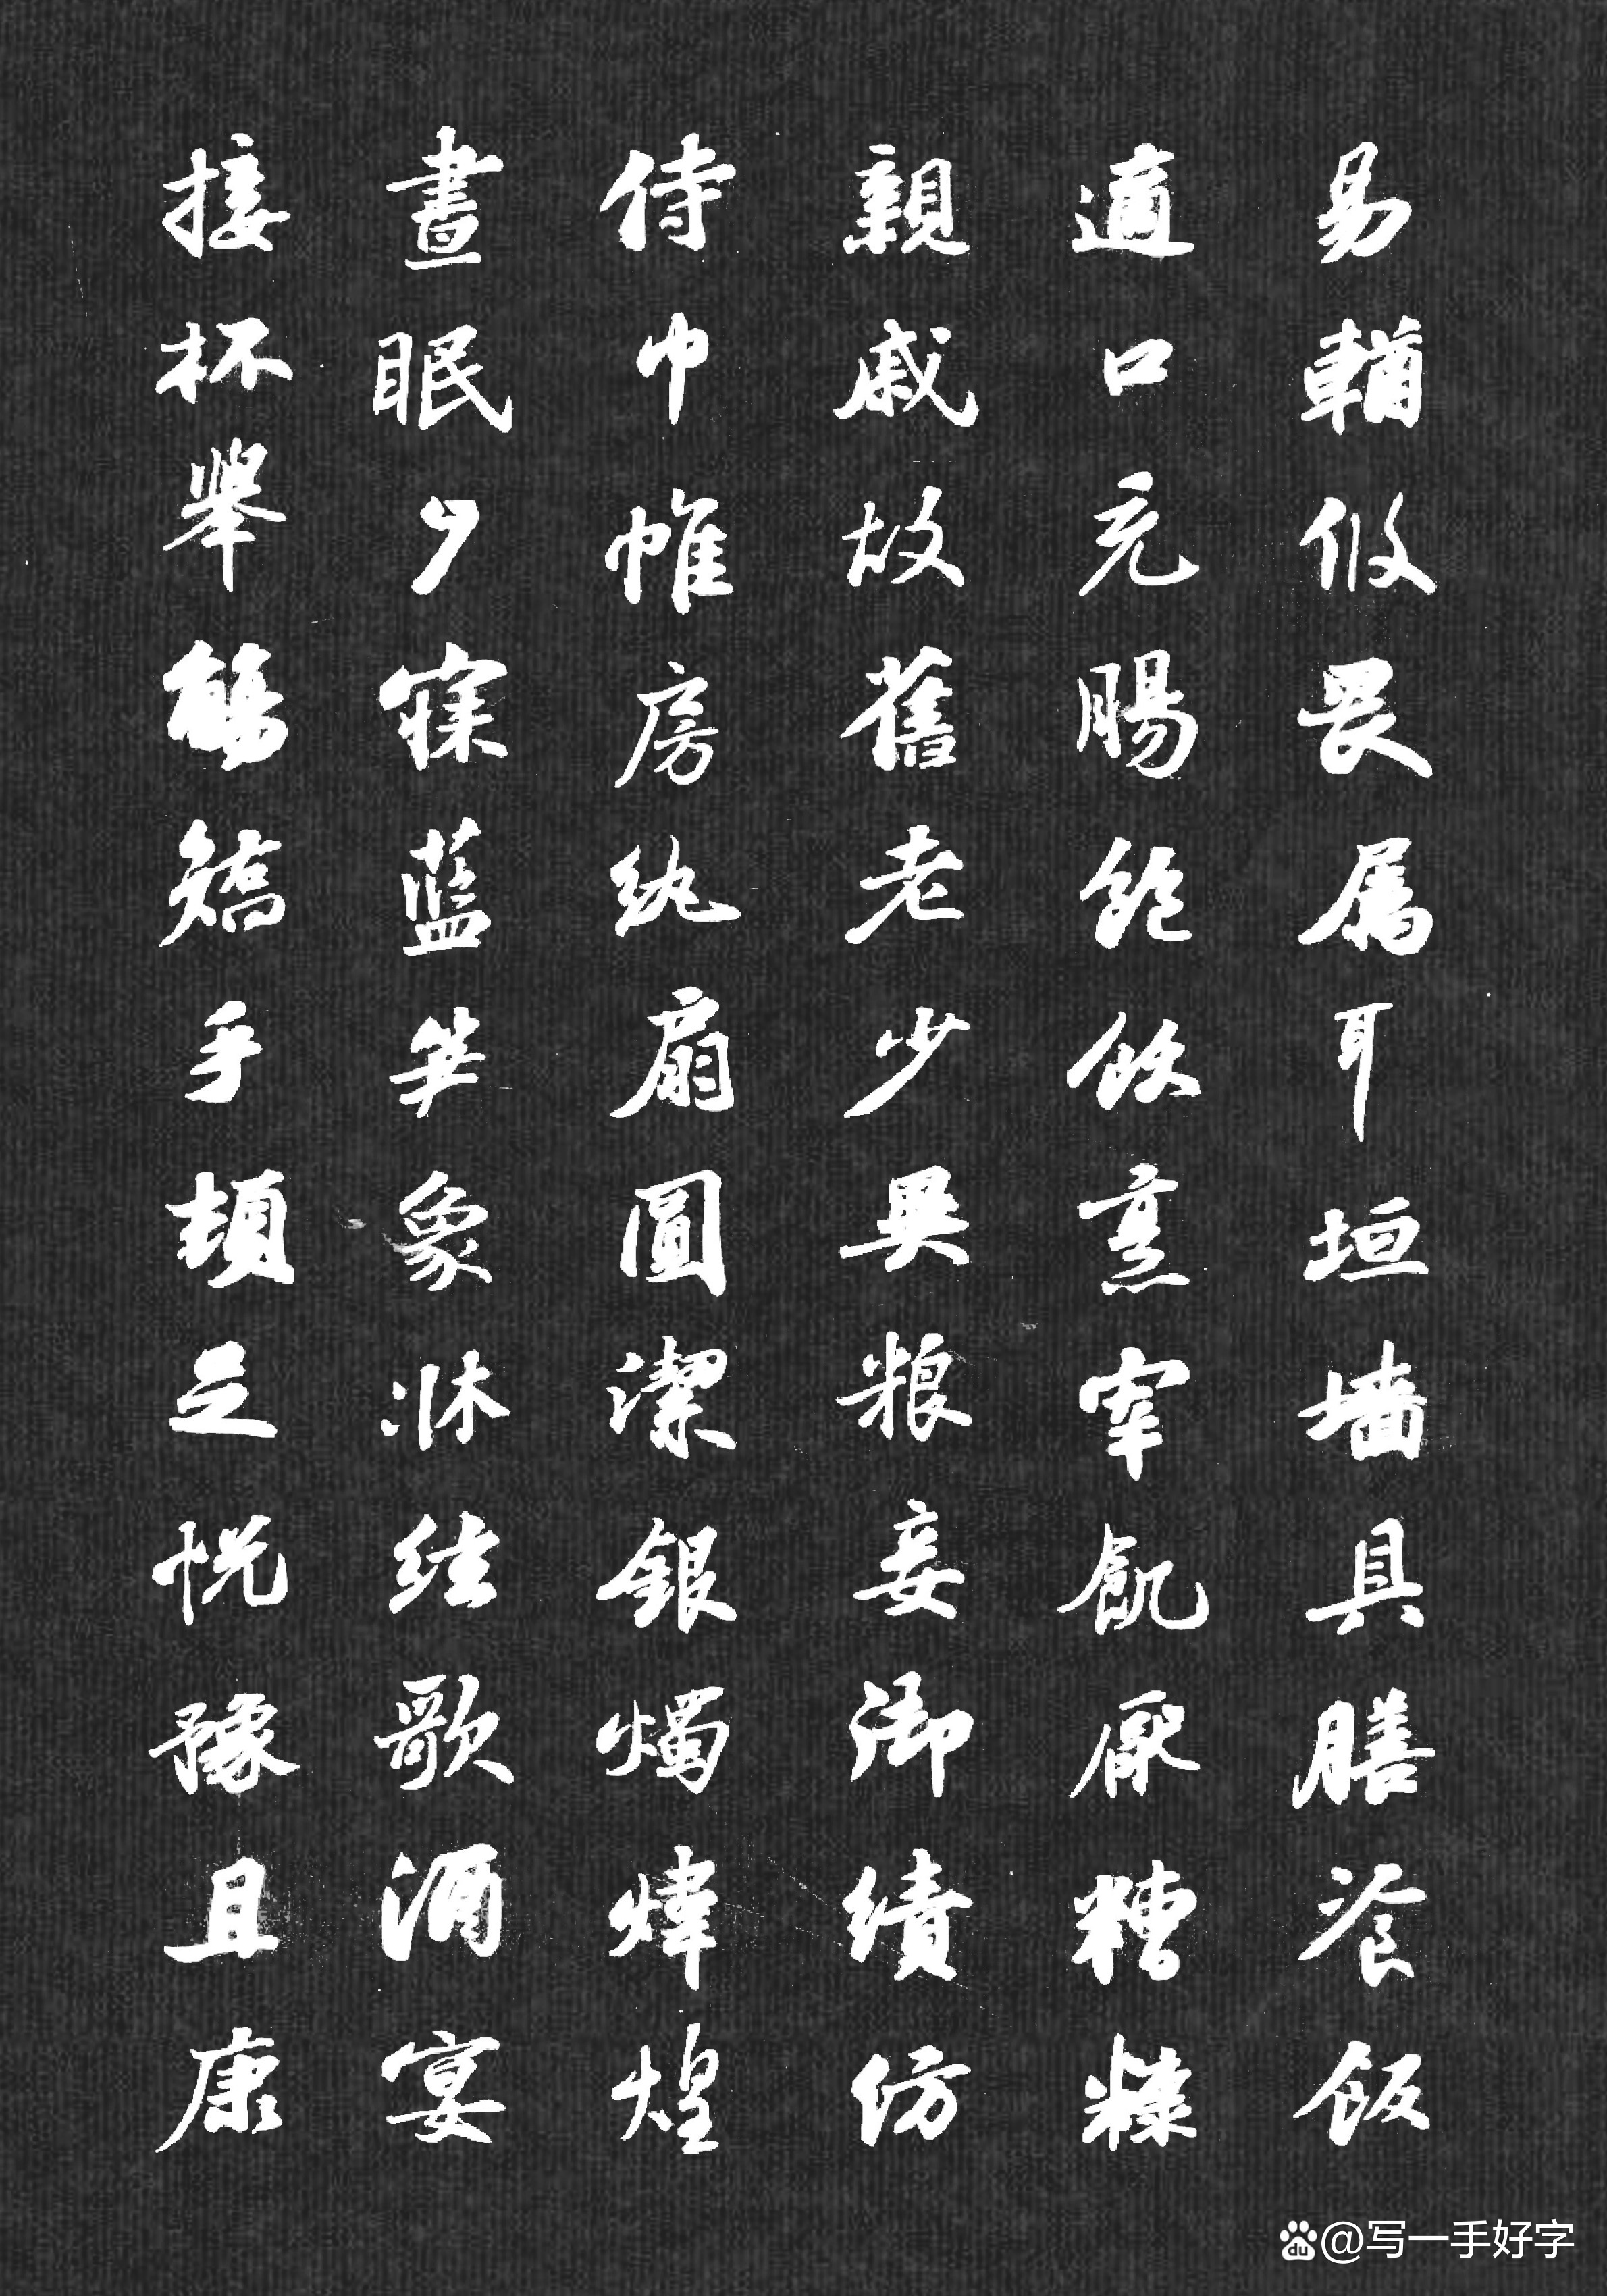 易輶攸畏属耳垣墻具膳飡飯
適口充腸飽飫烹宰飢厭糟糠
親戚故舊老少異粮妾御績紡
侍巾帷房紈扇圓潔銀燭煒煌
晝眠夕寐藍笋象牀弦歌酒宴
接杯舉觴矯手頓足悅豫且康
@写一手好字